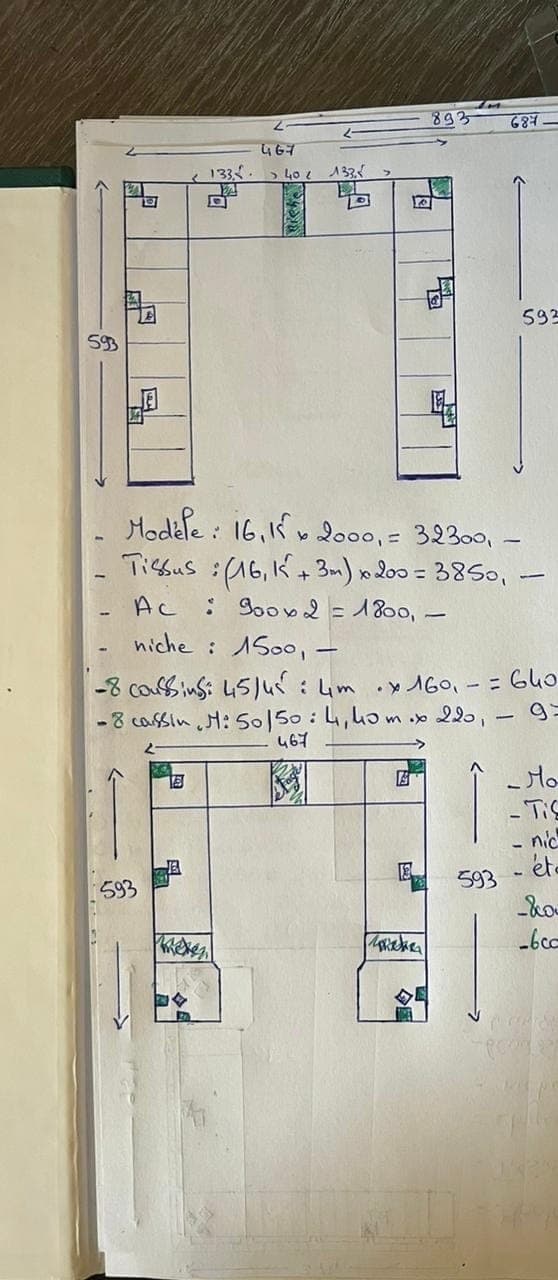 893
687
467
133,5 40 133,5
niche
593
593
- Modèle : 16,15 x 2000,- = 32300,-
- Tissus : (16,15 + 3m) x 200 = 3850,-
- Ac : 900 x 2 = 1800,-
- niche : 1500,-
-8 coussins: 45/45 : 4m . x 160,- = 640
-8 cassin.M: 50/50 : 4,40m . x 220,- 9
467
593
593
niche
niche
- Mo
- Tis
- nic
- ét
-8co
-6co